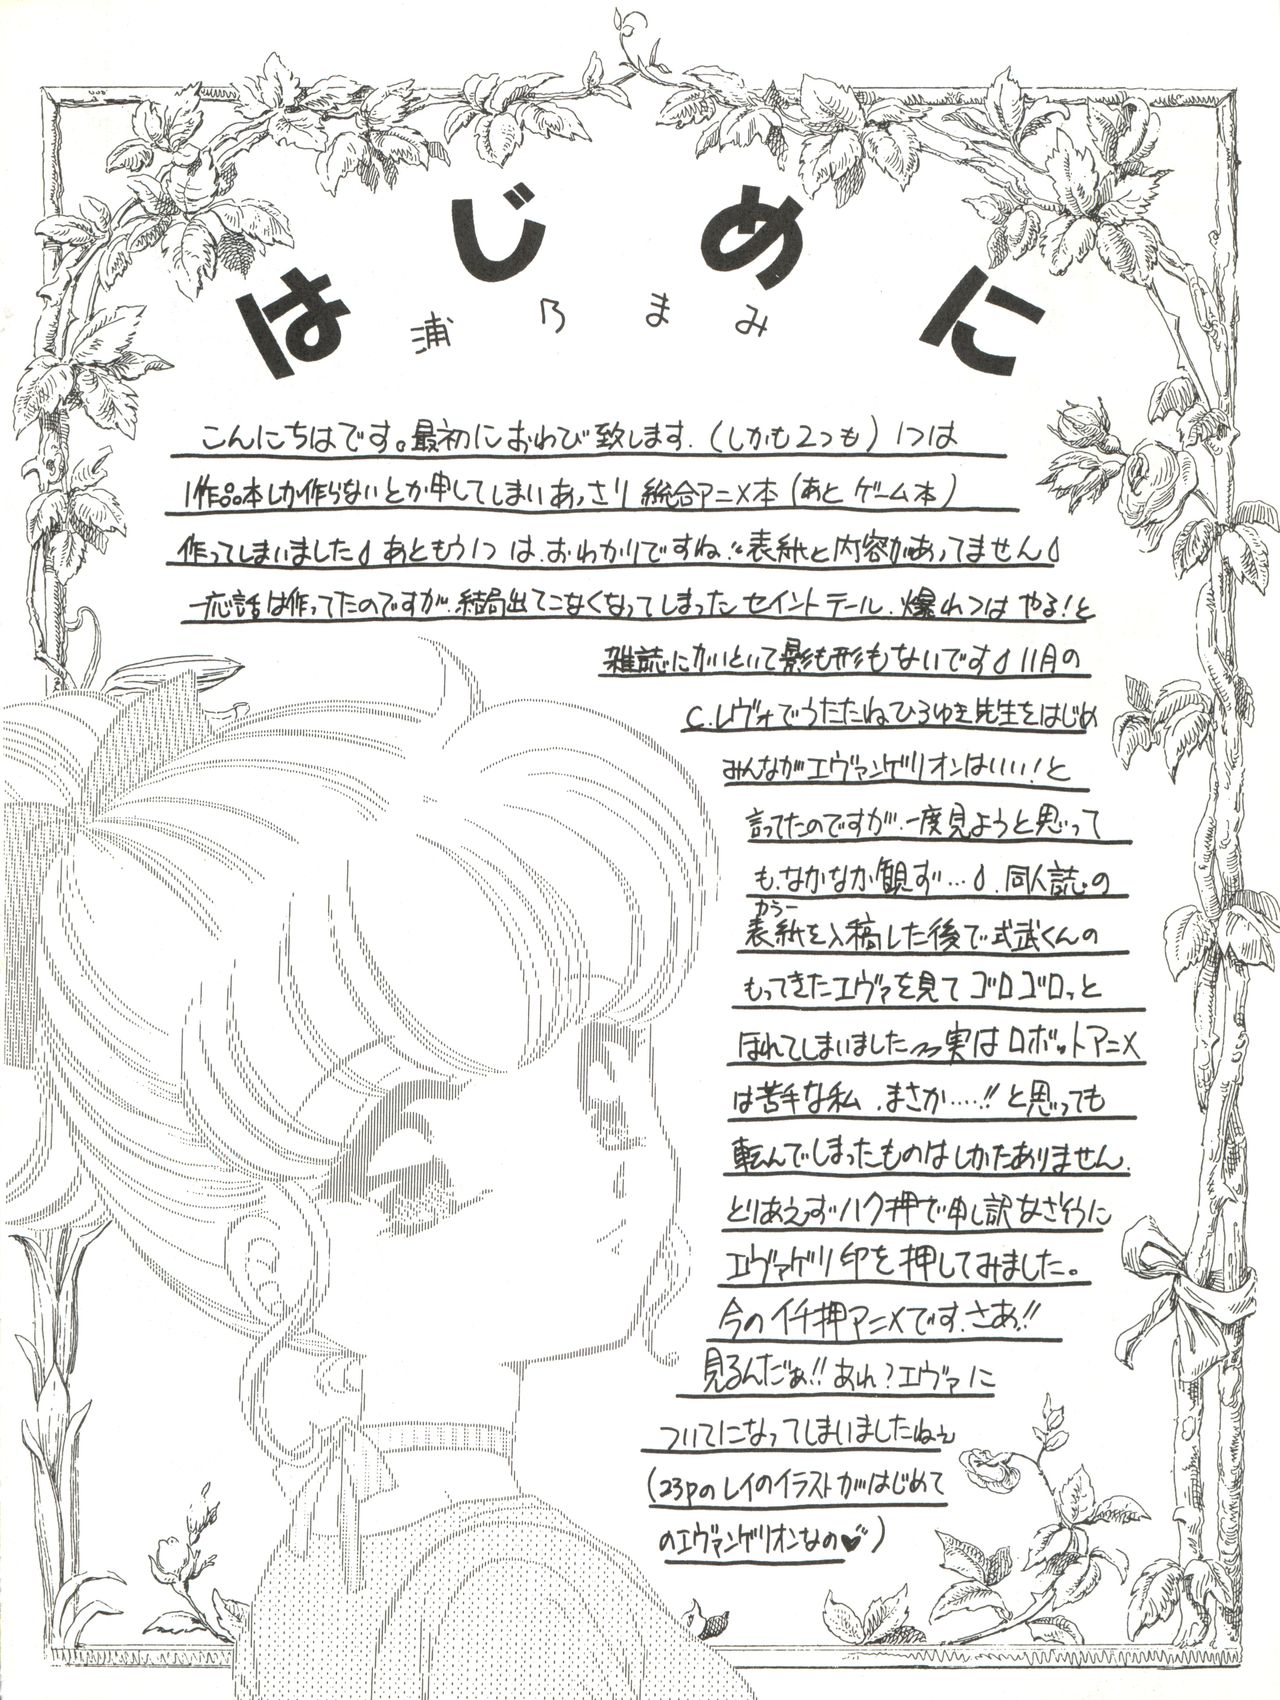 はじめに
浦乃まみ
こんにちはです。最初におわび致します.(しかも2つも)1つは
1作品本しか作らないとか申してしまいあっさり総合アニメ本(あとゲーム本)
作ってしまいました あともう1つは、おわかりですね!!表紙と内容があってません
一応話は作ってたのですが、結局出てこなくなってしまったセイントテール、爆れつはやる!と
雑誌にかいといて影も形もないです 11月の
C.レヴォでうたたねひろゆき先生をはじめ
みんながエヴァンゲリオンはいい!と
言ってたのですが、一度見ようと思って
も、なかなか観ず…、同人誌の
カラー
表紙を入稿した後で式武くんの
もってきたエヴァを見てゴロゴロっと
ほれてしまいました〜実はロボットアニメ
は苦手な私、まさか……!!と思っても
転んでしまったものはしかたありません.
とりあえずハク押で申し訳なさそうに
エヴァゲリ印を押してみました。
今のイチ押アニメです.さあ!!
見るんだぁ!!あれ?エヴァに
ついてになってしまいましたねぇ
(23Pのレイのイラストがはじめて
のエヴァンゲリオンなの♥)